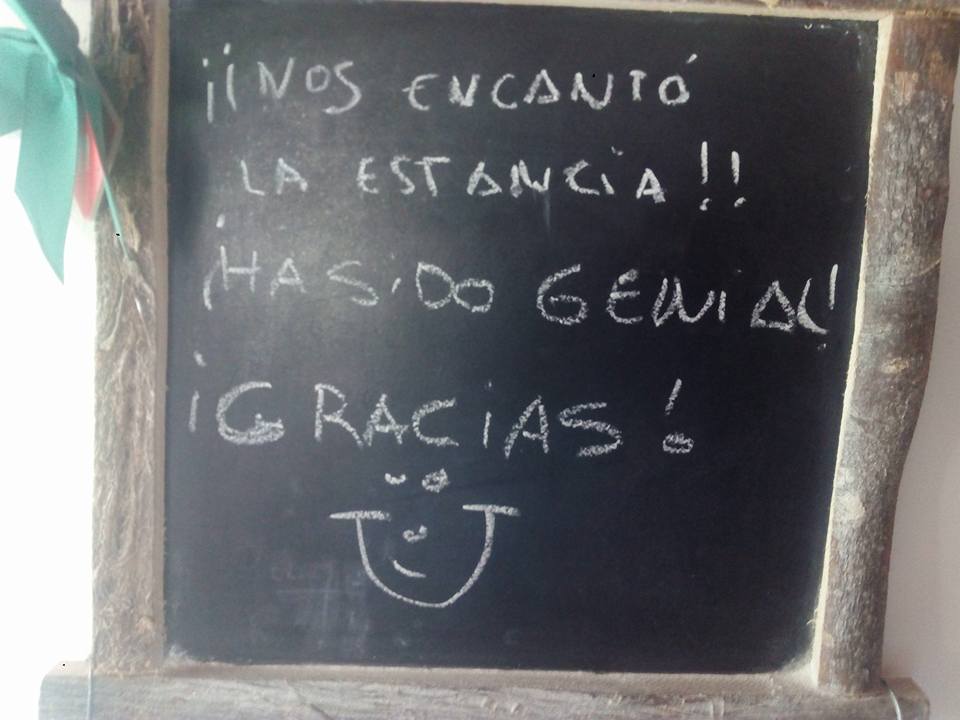 ¡¡NOS ENCANTÓ
LA ESTANCIA!!
¡HA SIDO GENIAL!
¡GRACIAS!